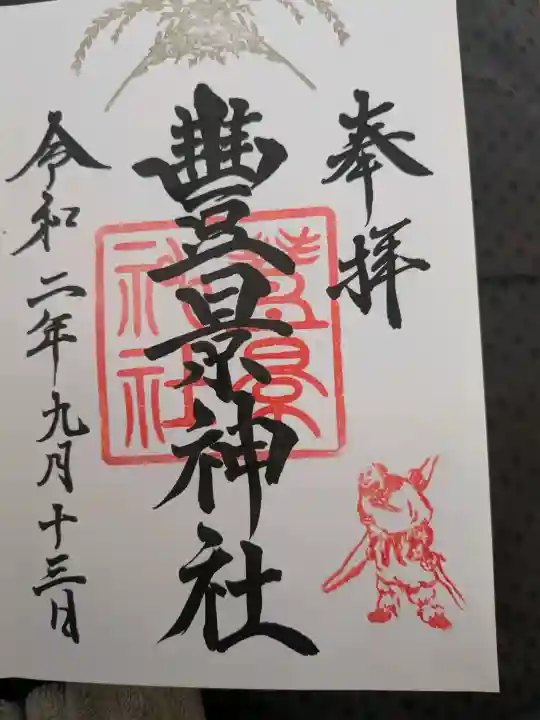 奉拝
豊景神社
豐景神社
令和二年九月十三日